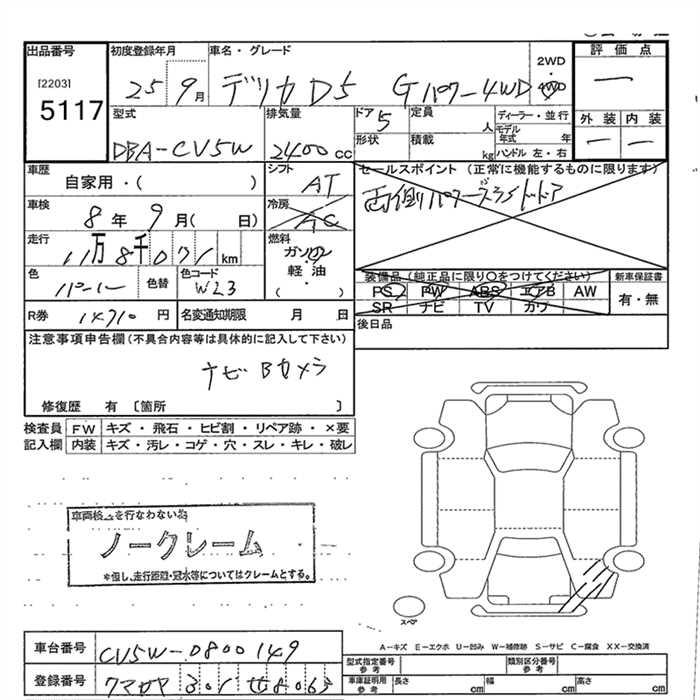 出品番号 初度登録年月 車名・グレード 2WD・4WD 評価点
[2203]
5117
25 9月 デリカD5 Gパワー4WD
型式 排気量 ドア 定員 人 ディーラー・並行 外装 内装
5
形状 積載 kg モデル年式 年
ハンドル 左・右
DBA-CV5W 2400cc
車歴 シフト セールスポイント (正常に機能するものに限ります)
自家用・( ) AT 両側パワースライドドア
車検 冷房
8年9月( 日) AC
走行 燃料
11万8千071km ガソリン・軽油・( )
色 色替 色コード 装備品(純正品に限り○をつけてください) 新車保証書
パール W23 PS PW ABS エアB AW 有・無
SR ナビ TV カワ
R券 円 名変通知期限 月 日 後日品
注意事項申告欄(不具合内容等は具体的に記入して下さい)
ナビ Bカメラ
修復歴 有〔箇所 〕
検査員 FW キズ・飛石・ヒビ割・リペア跡・×要
記入欄 内装 キズ・汚レ・コゲ・穴・スレ・キレ・破レ
車両検査を行わない為
ノークレーム
*但し、走行距離・冠水等についてはクレームとする。
スペア
A-キズ E-エクボ U-凹み W-補修跡 S-サビ C-腐食 XX-交換済
車台番号 CV5W-0800149
型式指定番号 参考 類別区分番号 参考
登録番号 301 8065
車庫証明用 参考 長さ cm 幅 cm 高さ cm